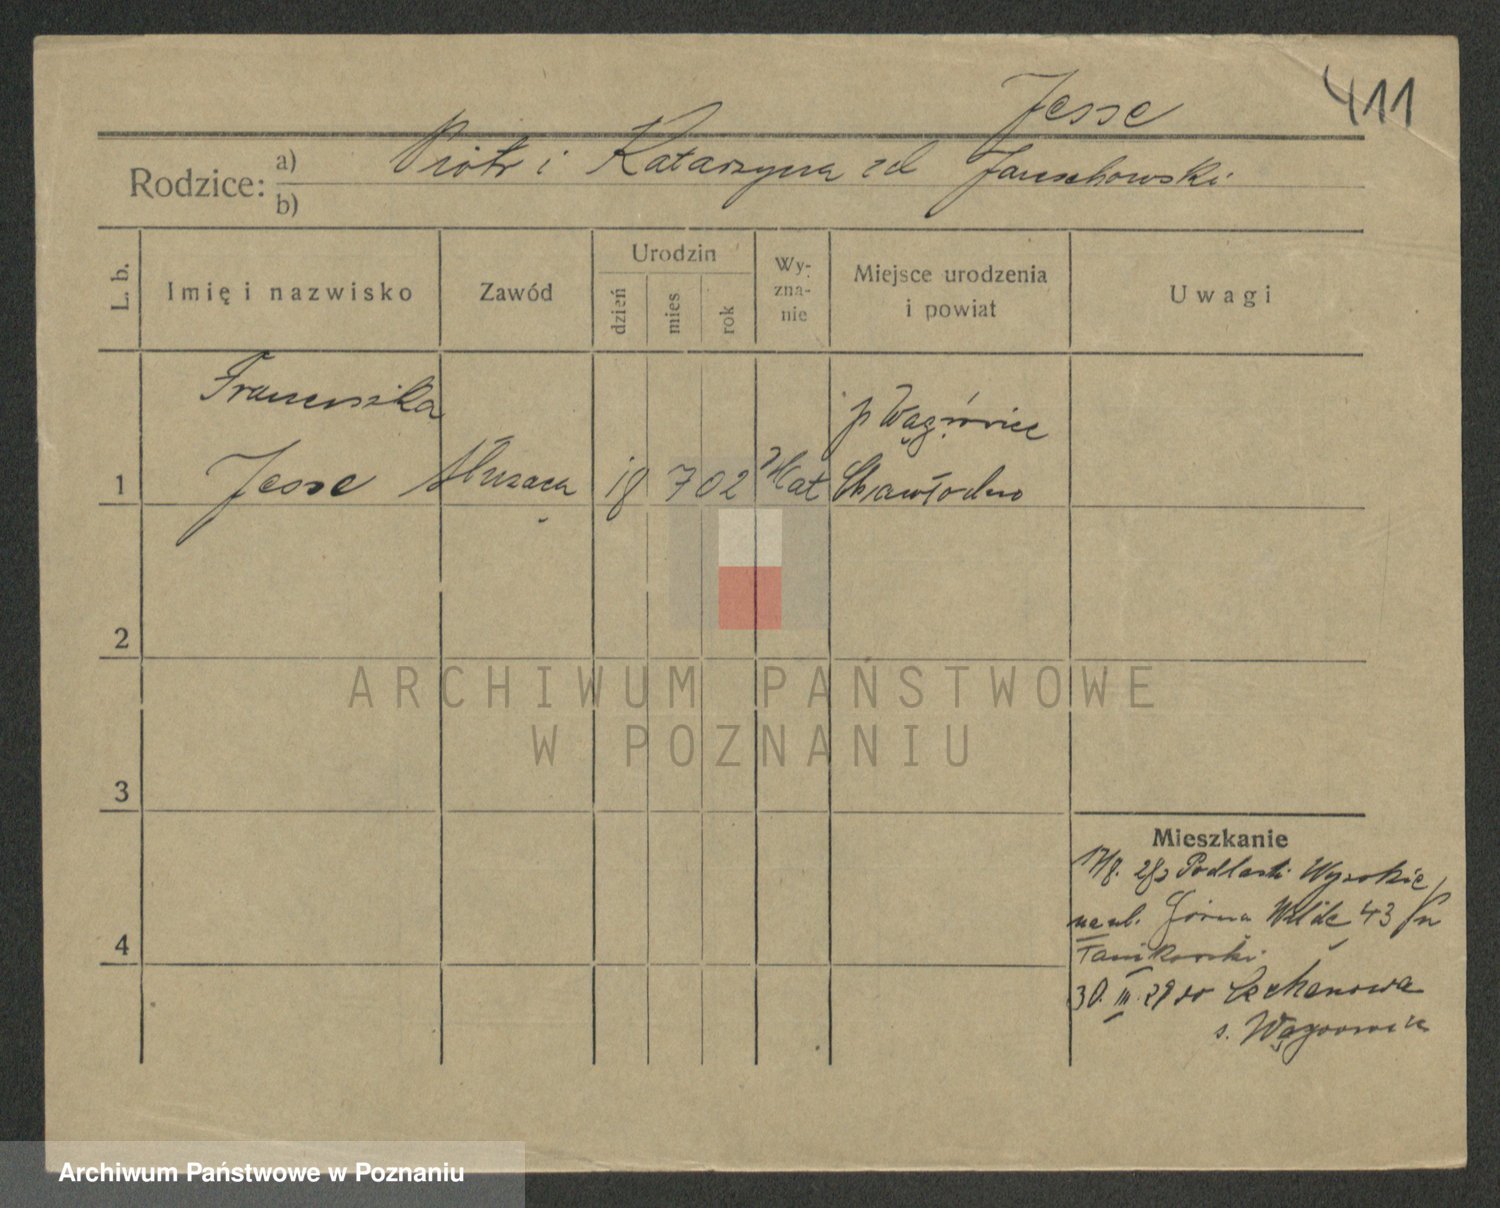 411
Jesse
Rodzice: a) Piotr i Katarzyna zd Januchowski
b)
L. b.
Imię i nazwisko
Zawód
Urodzin
dzień
mies
rok
Wy-
zna-
nie
Miejsce urodzenia
i powiat
Uwagi
Franciszka
p Wągrówiec
1 Jesse Służąca 18 7 02 Kat Chawłodno
2
3
4
Mieszkanie
17/8. 28 z Podlaski Wysokie
na ul. Górna Wilde 43
30. III. 29 do
Wągrowiec
ARCHIWUM PAŃSTWOWE
W POZNANIU
Archiwum Państwowe w Poznaniu